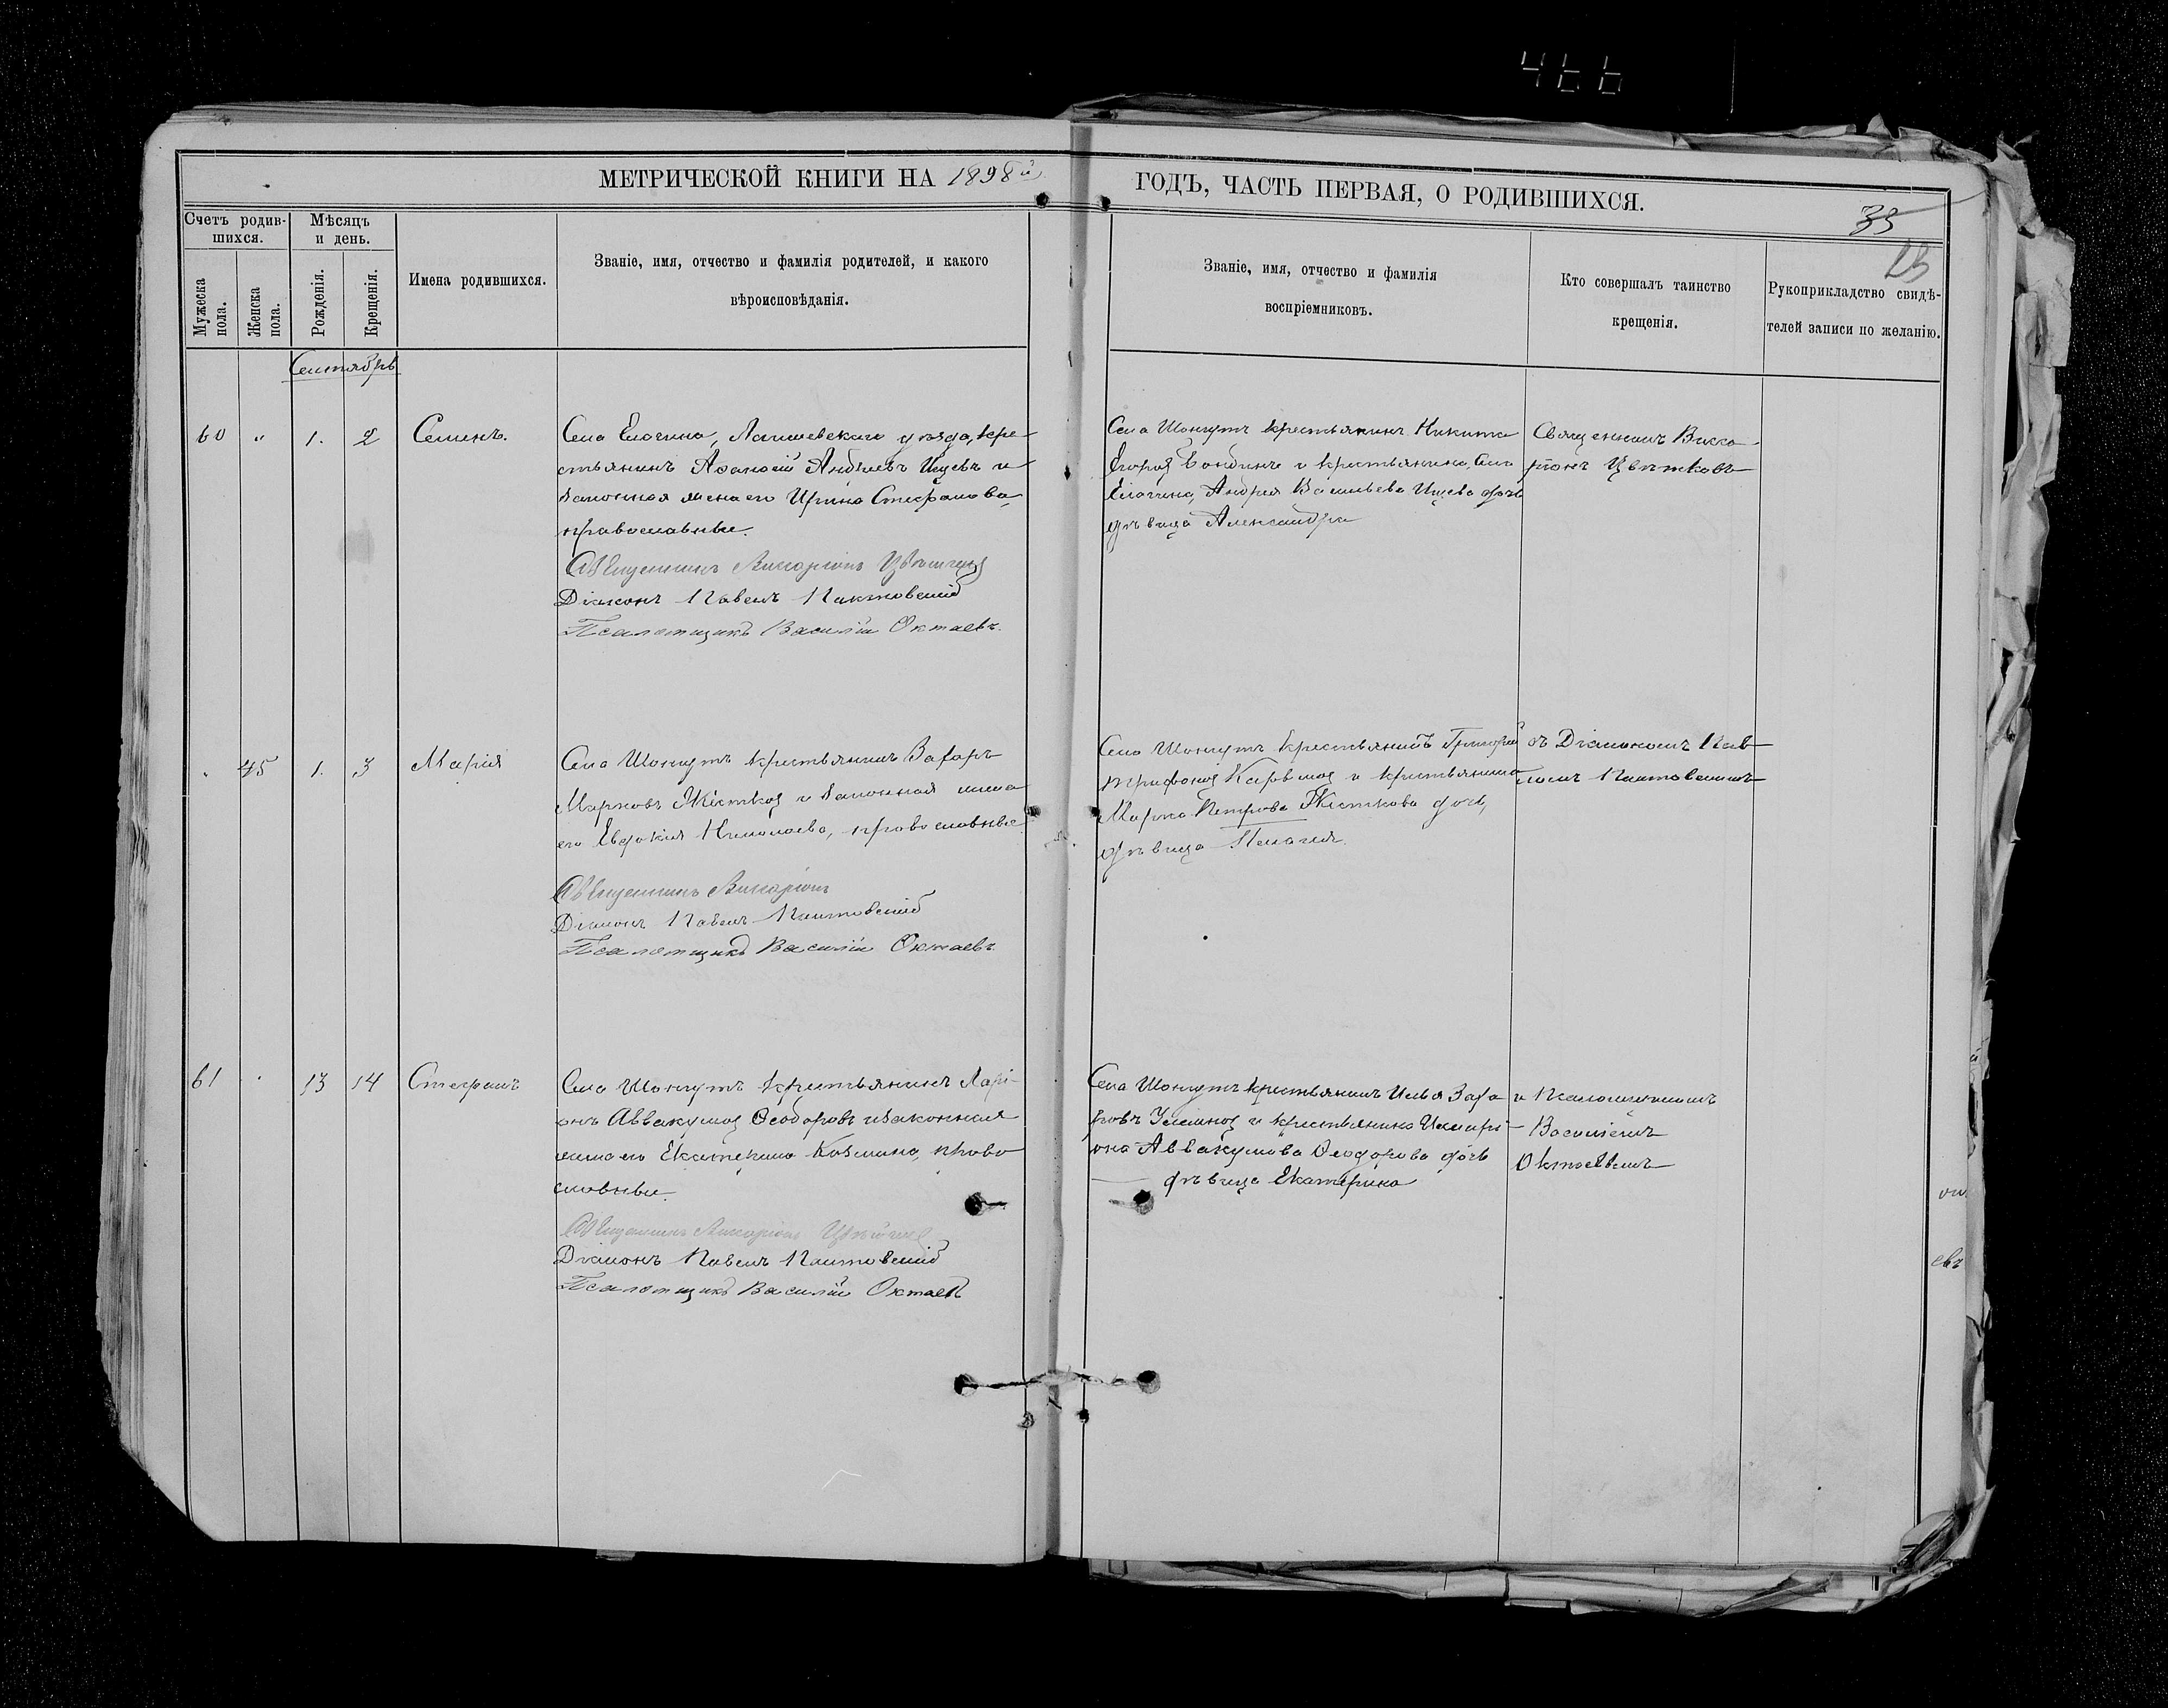 МЕТРИЧЕСКОЙ КНИГИ НА 1898й ГОДЪ, ЧАСТЬ ПЕРВАЯ, О РОДИВШИХСЯ.
35
Счетъ родив-
шихся.
Мужеска пола.
Женска пола.
Мѣсяцъ
и день.
Рожденія.
Крещенія.
Имена родившихся.
Званіе, имя, отчество и фамилія родителей, и какого
вѣроисповѣданія.
Званіе, имя, отчество и фамилія
воспріемниковъ.
Кто совершалъ таинство
крещенія.
Рукоприкладство свидѣ-
телей записи по желанію.
Сентябрь
60 " 1. 2 Семенъ.
Села Лаишевскаго уѣзда, кре-
стьянинъ и
законная жена его Ирина Стефанова,
православные.
Священникъ Виссаріонъ Цвѣтковъ
Діаконъ Павелъ
Псаломщикъ Василій Октаевъ.
Села Шонгутъ крестьянинъ Никита
и крестьянина села
Андрея Васильева дочь
дѣвица Александра
Священникъ Висса-
ріонъ Цвѣтковъ
45 1. 3 Марія
Села Шонгутъ крестьянинъ Захаръ
Марковъ и законная жена
его Евдокія Николаева, православные
Священникъ Виссаріонъ
Діаконъ Павелъ
Псаломщикъ Василій Октаевъ
Села Шонгутъ крестьянинъ Григорій
Трифоновъ и крестьянина
Марка Петрова дочь,
дѣвица Пелагія.
съ Діакономъ Пав-
ломъ
61 13 14 Стефанъ
Села Шонгутъ крестьянинъ Ларі-
онъ Аввакумовъ Ѳеодоровъ и законная
жена его Екатерина Козмина, право
славные.
Священникъ Виссаріонъ Цвѣтковъ
Діаконъ Павелъ
Псаломщикъ Василій Октаевъ
Села Шонгутъ крестьянинъ Илья Заха
ровъ и крестьянина Иларі-
она Аввакумова Ѳеодорова дочь
дѣвица Екатерина
и Псаломщикомъ
Василіемъ
Октаевымъ
евъ